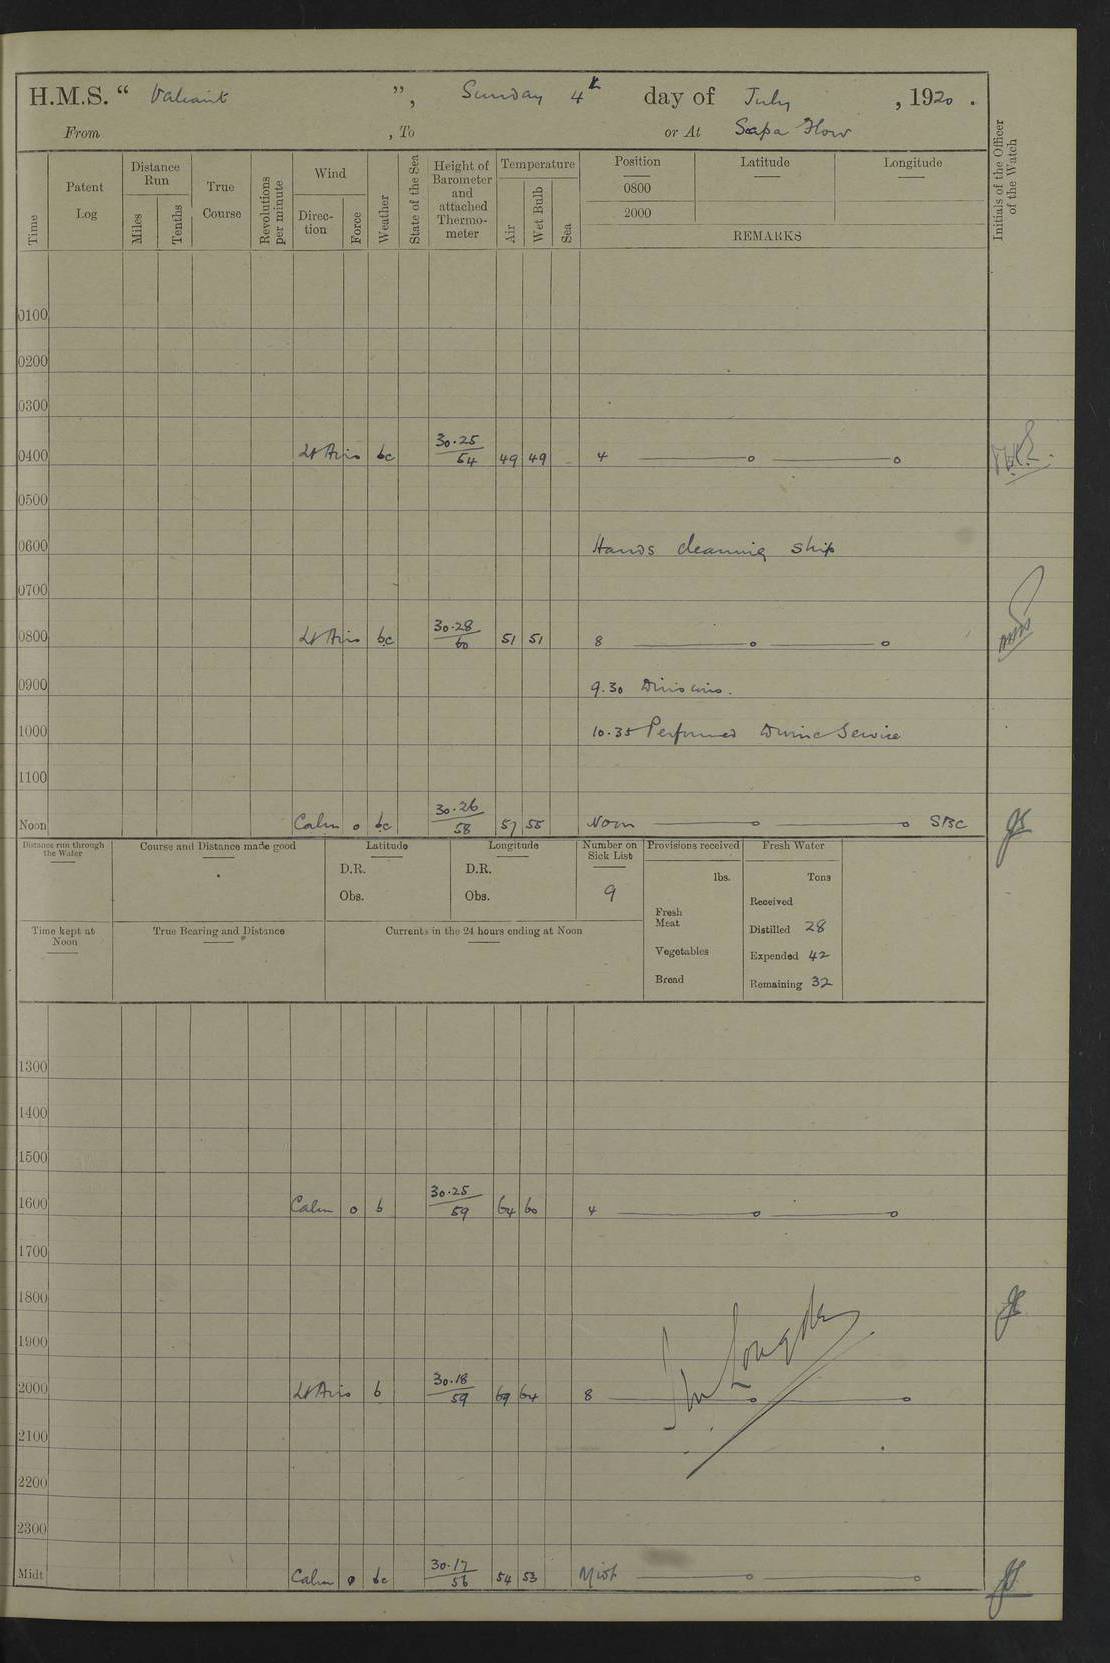 H.M.S. “ Valiant ”, Sunday 4th day of July , 1920 .
From , To or At Scapa Flow
Time Patent Log Distance Run Miles Tenths True Course Revolutions per minute Wind Direc-tion Force Weather State of the Sea Height of Barometer and attached Thermo-meter Temperature Air Wet Bulb Sea Position Latitude Longitude
0800
2000
REMARKS
Initials of the Officer of the Watch
0100
0200
0300
0400 Lt Airs bc 30.25/54 49 49 4
0500
0600 Hands cleaning ship
0700
0800 Lt Airs bc 30.28/60 51 51 8
0900 9.30 Divisions.
1000 10.35 Performed Divine Service
1100
Noon Calm 0 bc 30.26/58 57 55 Noon SBC
Distance run through the Water Course and Distance made good Latitude Longitude Number on Sick List Provisions received Fresh Water
D.R. D.R. lbs. Tons
Obs. Obs. 9 Received
Fresh Meat Distilled 28
Time kept at Noon True Bearing and Distance Currents in the 24 hours ending at Noon
Vegetables Expended 42
Bread Remaining 32
1300
1400
1500
1600 Calm 0 b 30.25/59 64 60 4
1700
1800
1900
2000 Lt Airs b 30.18/59 69 64 8
2100
2200
2300
Midt Calm 0 bc 30.17/56 54 53 Midt